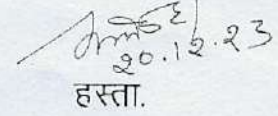 20.12.23
हस्ता.